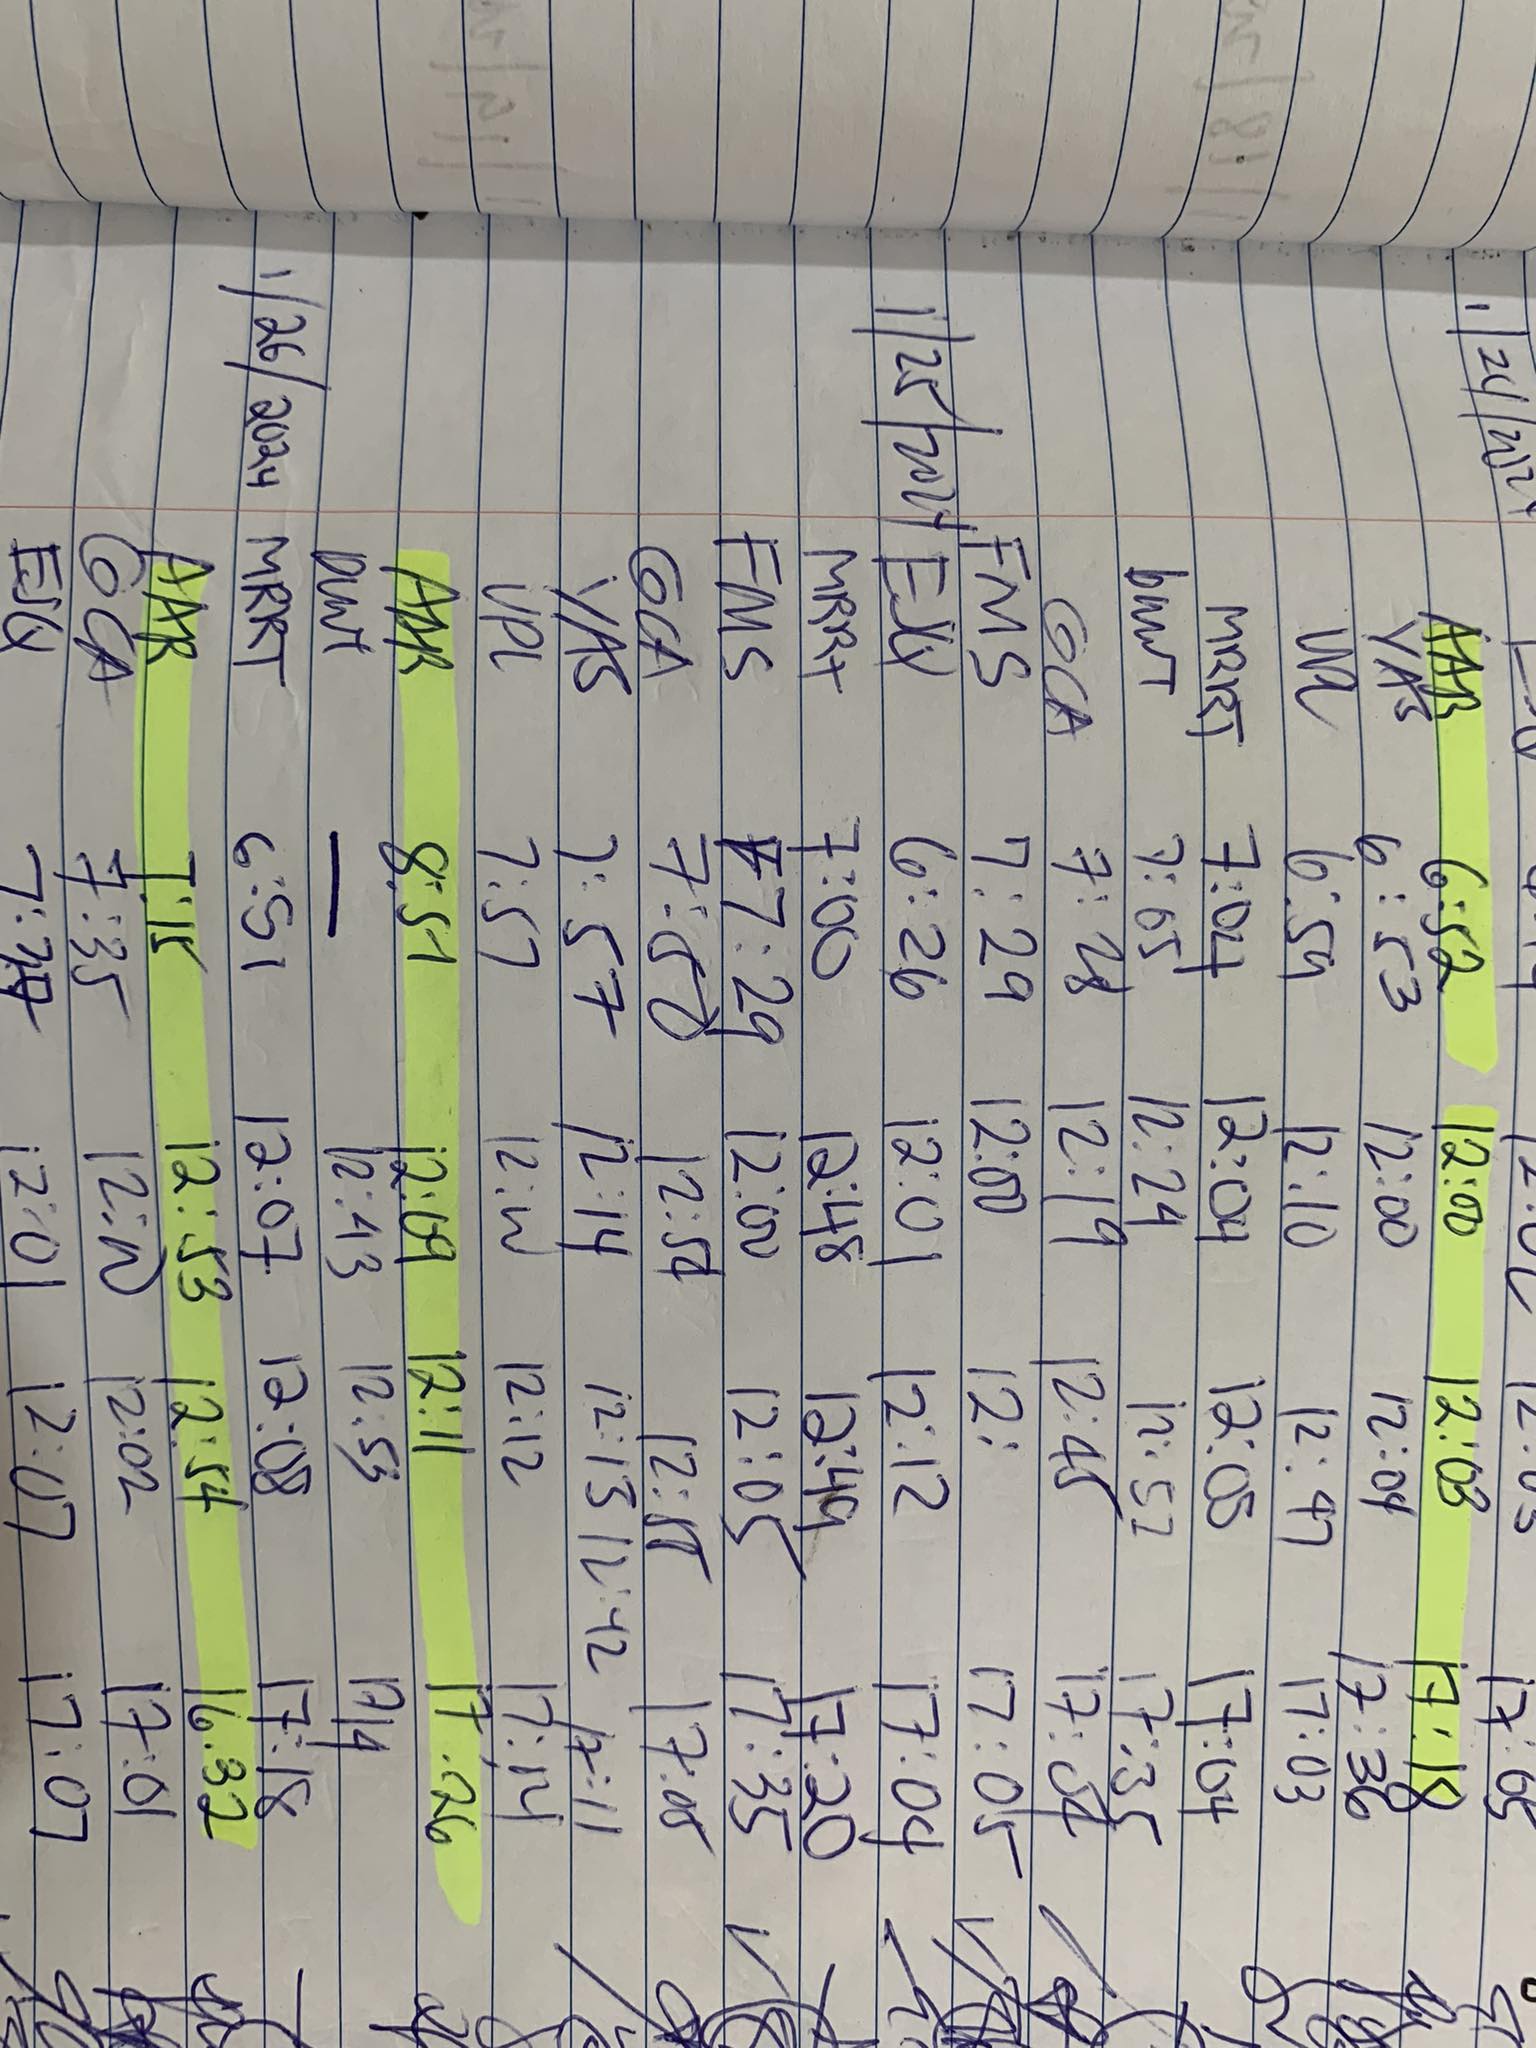 1/24/2024
AAB 6:52 12:00 12:03 17:18
YAB 6:53 12:00 12:04 17:36
UPL 6:54 12:10 12:47 17:03
MRRT 7:04 12:04 12:05 17:04
bumT 7:05 12:24 12:57 17:35
GCA 7:28 12:19 12:45 17:34
FMS 7:29 12:00 12: 17:05
1/25/2024 6:26 12:01 12:12 17:04
MRRT 7:00 12:48 12:49 17:20
FMS 7:29 12:00 12:05 17:35
GCA 12:54 17:05
YAB 7:57 12:14 12:13 12:42 17:11
UPL 7:57 12:12 17:14
AAB 12:09 12:11 17:26
bumT — 12:43 12:53 1714
1/26/2024 MRRT 6:51 12:07 12:08 17:18
AAB 7:15 12:53 12:54 16:32
GCA 7:35 12:02 17:01
12:01 12:07 17:07